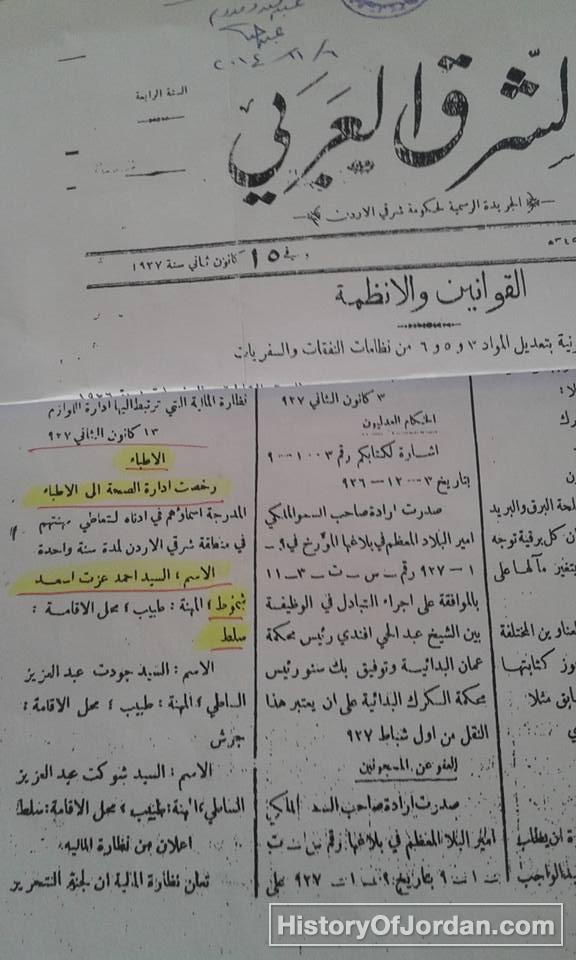 ٢٠١٤/١١/٦
السنة الرابعة
الشرق العربي
الجريدة الرسمية لحكومة شرقي الاردن
في ١٥ كانون ثاني سنة ١٩٢٧
القوانين والانظمة
بتعديل المواد ٣ و ٥ و ٦ من نظامات النفقات والسفريات
لحة البرق والبريد
ان كل برقية توجه
يتغير مآلها على
عناوين المختلفة
كتابتها
مثلا
٣ كانون الثاني ٩٢٧
الحكام العدليون
اشارة لكتابكم رقم ٣-١٠٠-٩
بتاريخ ٣-١٢-٩٢٦
صدرت ارادة صاحب السمو الملكي
امير البلاد المعظم في بلاغها المؤرخ في ٩-
١-٩٢٧ رقم س-ت-٣-١١
بالموافقة على اجراء التبادل في الوظيفة
بين الشيخ عبد الحي افندي رئيس محكمة
عمان البدائية وتوفيق بك سنو رئيس
محكمة الكرك البدائية على ان يعتبر هذا
النقل من اول شباط ٩٢٧
العفو عن المسجونين
صدرت ارادة صاحب السمو الملكي
امير البلاد المعظم في بلاغها رقم س ت
بتاريخ ٩٢٧ على
نظارة المالية التي ترتبط اليها ادارة اللوازم
١٣ كانون الثاني ٩٢٧
الاطباء
رخصت ادارة الصحة الى الاطباء
المدرجة اسماؤهم في ادناه لتعاطي مهنتهم
في منطقة شرقي الاردن لمدة سنة واحدة
الاسم : السيد احمد عزت اسعد
شموط ؛ المهنة : طبيب ؛ محل الاقامة :
سلط
الاسم : السيد جودت عبد العزيز
الساطي ؛ المهنة : طبيب ؛ محل الاقامة :
جرش
الاسم : السيد شوكت عبد العزيز
الساطي ؛ المهنة : طبيب ؛ محل الاقامة : سلط
اعلان من نظارة المالية
تعلن نظارة المالية ان لجنة التحرير
HistoryOfJordan.com